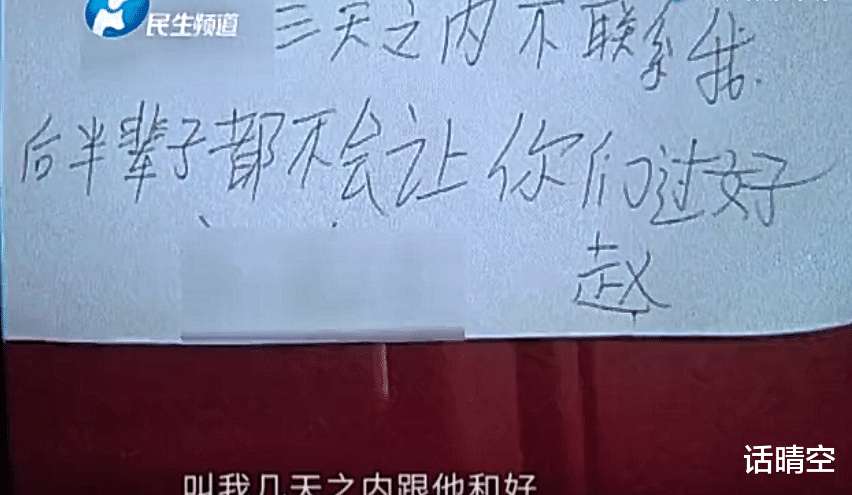 民生频道
三天之内不联系我.
后半辈子都不会让你们过好
赵
话晴空
叫我几天之内跟他和好